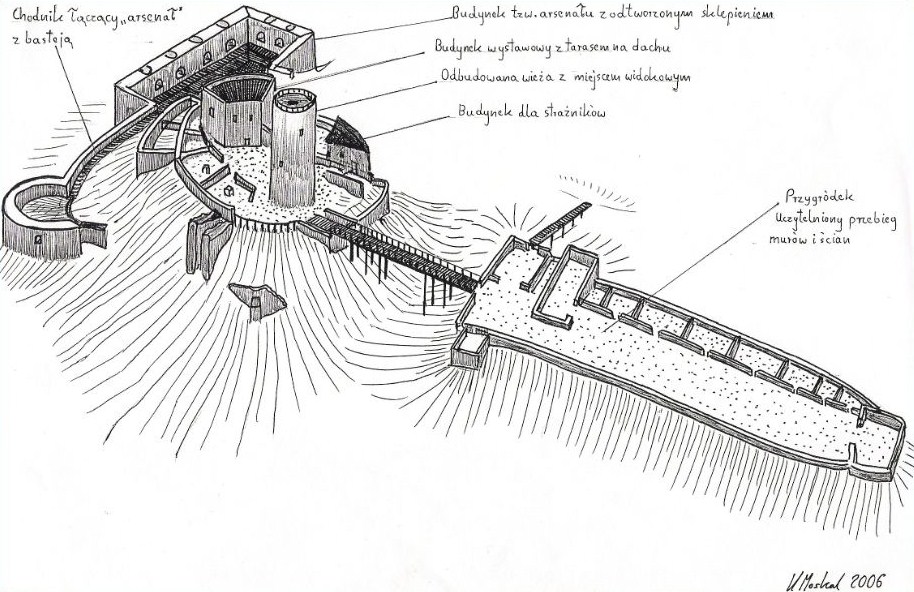 Chodnik łączący „arsenał”
z basteją
Budynek tzw. arsenału z odtworzonym sklepieniem
Budynek wystawowy z tarasem na dachu
Odbudowana wieża z miejscem widokowym
Budynek dla strażników
Przygródek
Uczytelniony przebieg
murów i ścian
K Moskal 2006